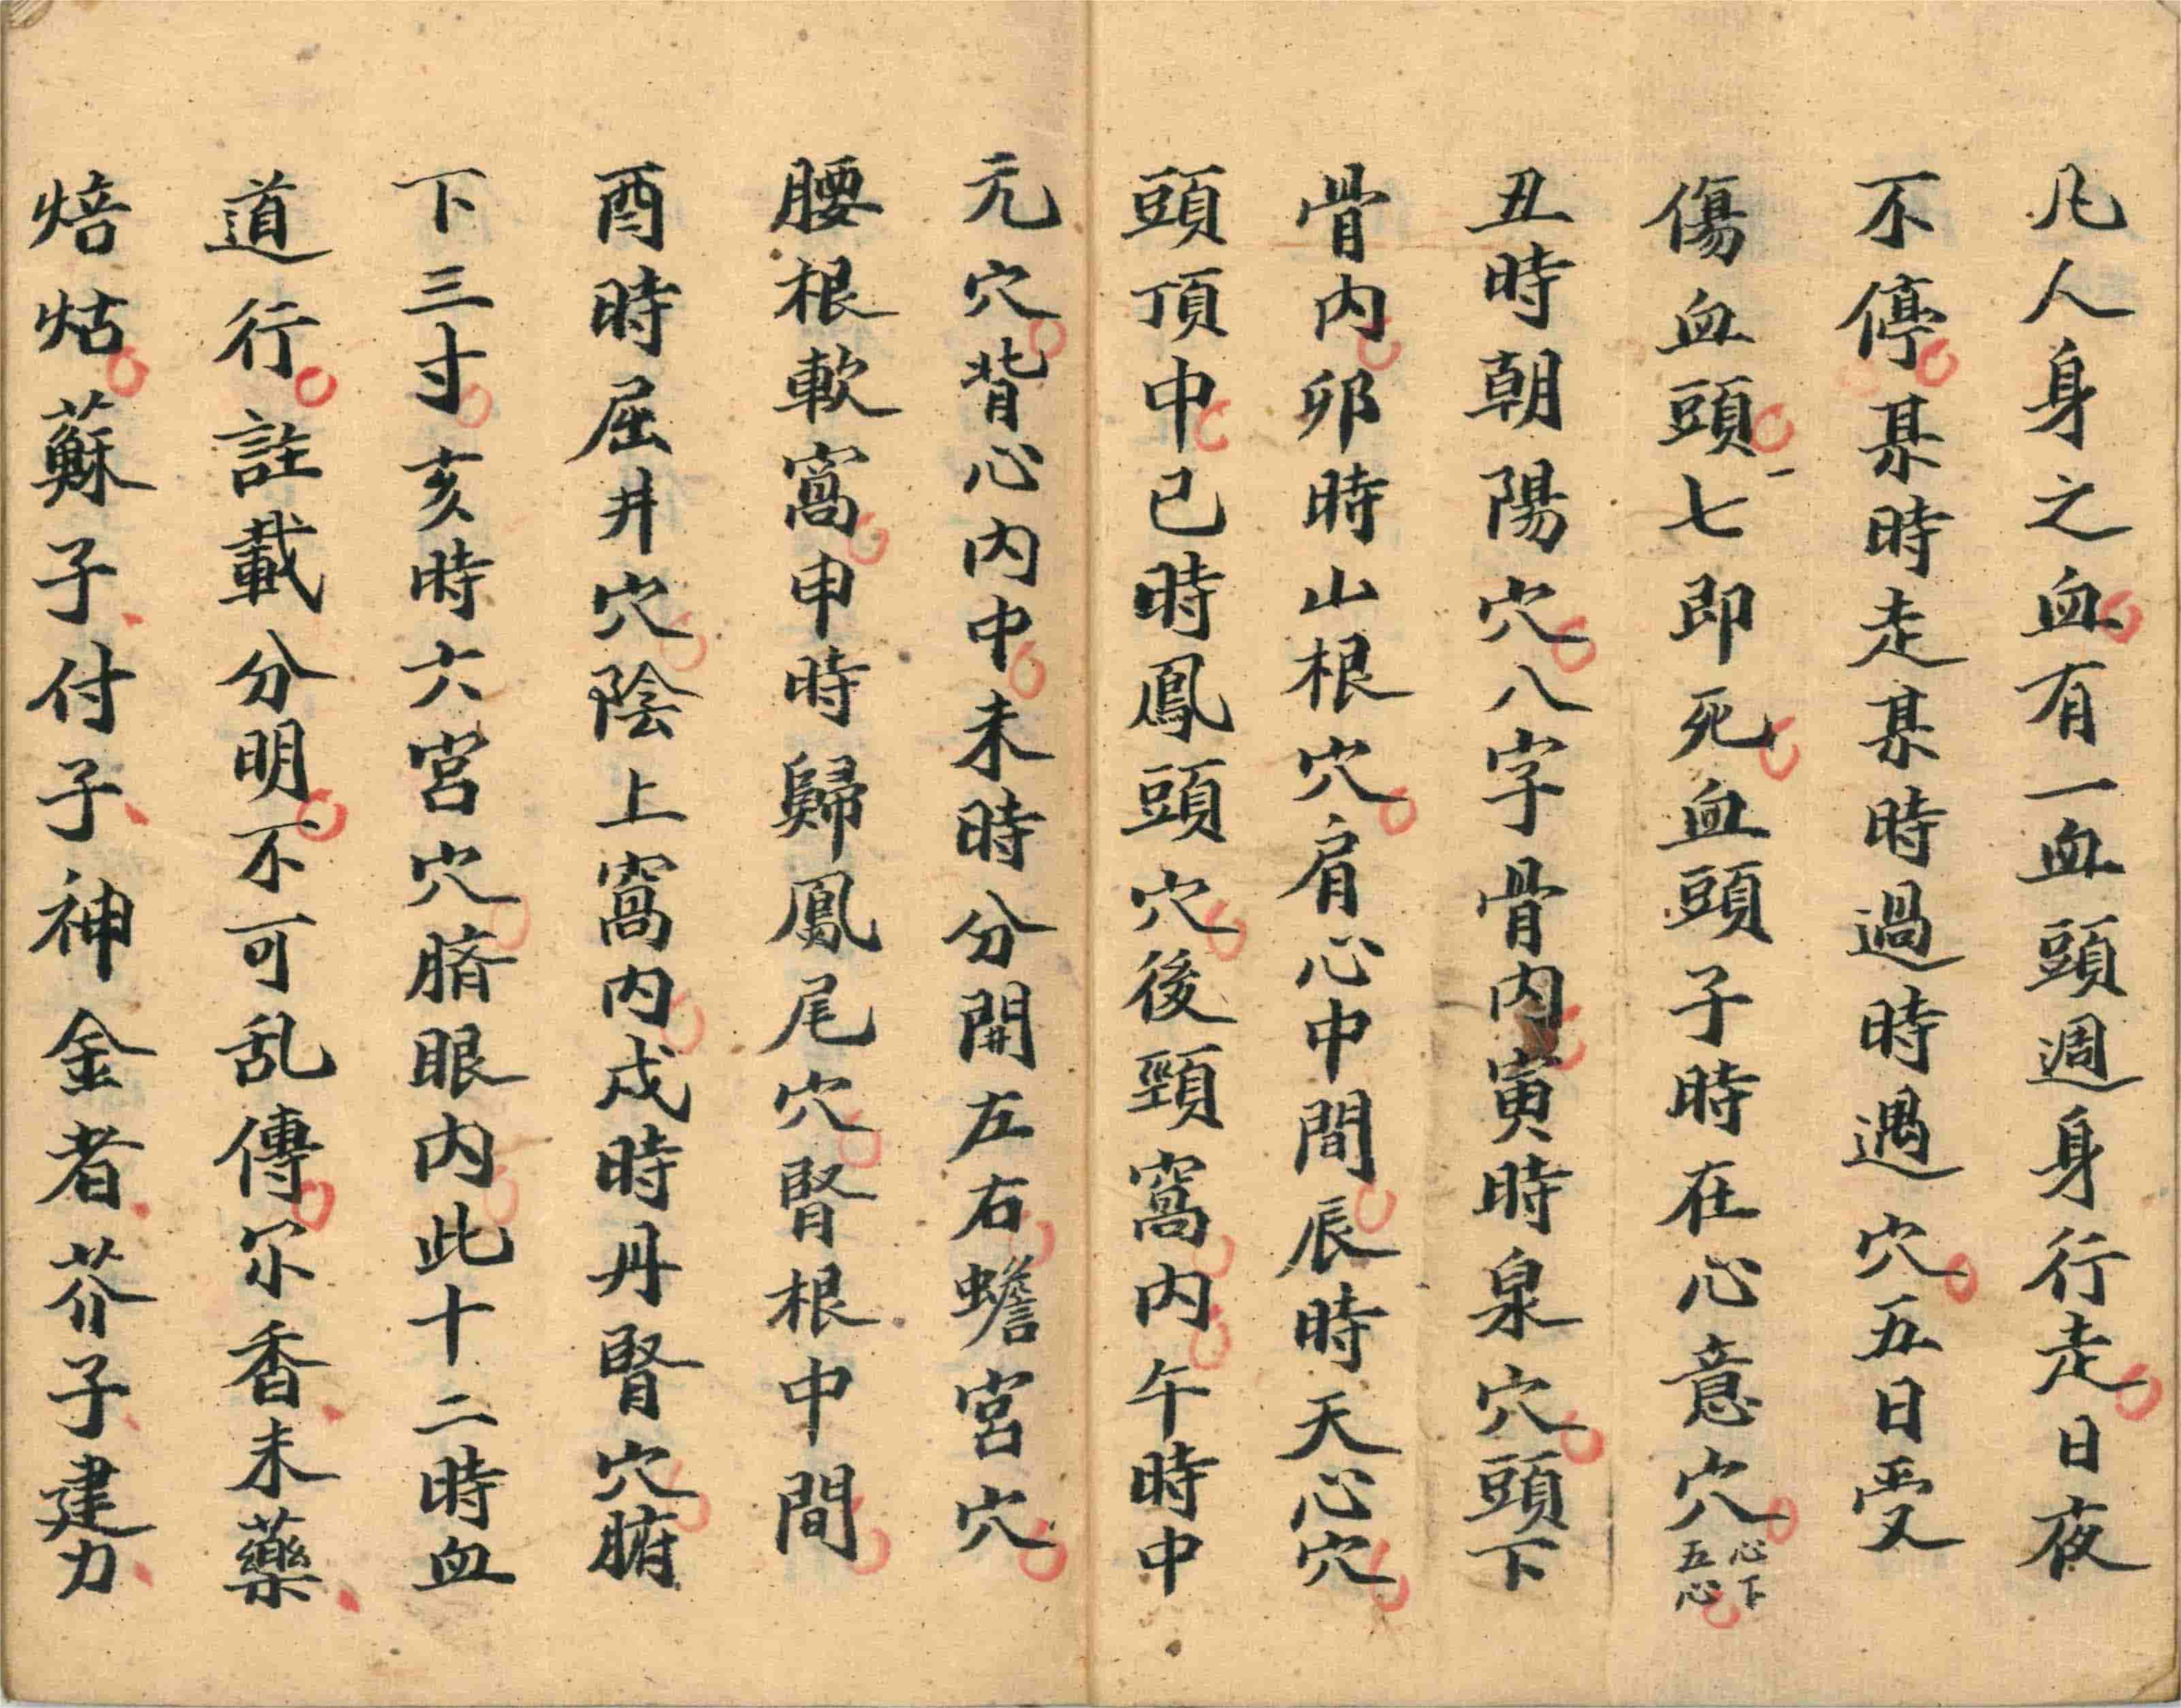 凡人身之血有一血頭週身行走日夜
不停某時走某時過時遇穴五日受
傷血頭一七即死血頭子時在心意穴心下五心
丑時朝陽穴八字骨內寅時泉穴頭下
骨內卯時山根穴肩心中間辰時天心穴
頭頂中巳時鳳頭穴後頸窩內午時中
元穴背心內中未時分開左右蟾宮穴
腰根軟窩申時歸鳳尾穴腎根中間
酉時屈井穴陰上窩內戌時丹腎穴腑
下三寸亥時六宮穴臍眼內此十二時血
道行註載分明不可乱傳尔香末藥
焙炶蘇子付子神金者芥子建力